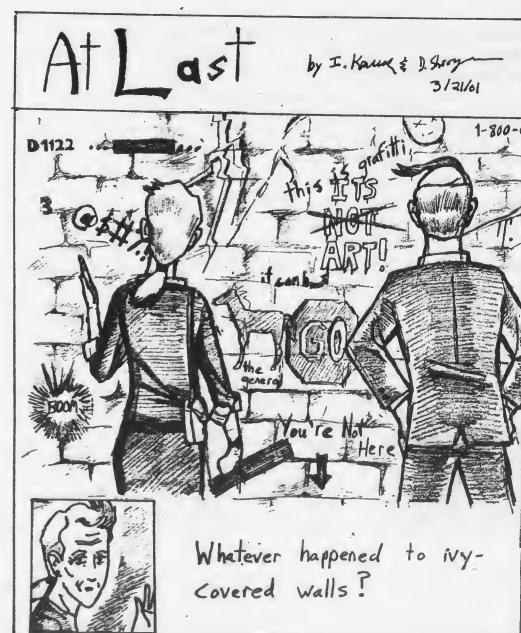 At Last
by I. & D.
3/21/01
D1122
1-800-
3
@$#%!
this is grafitti,
ITS
NOT
ART!
it can b
GO
the general
BOOM
You're Not
Here
Whatever happened to ivy-
covered walls?